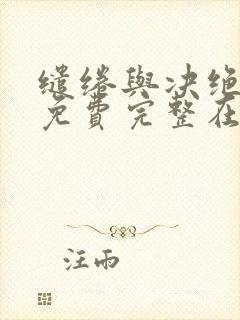 缱绻與决绝
免費完整在
汪雨